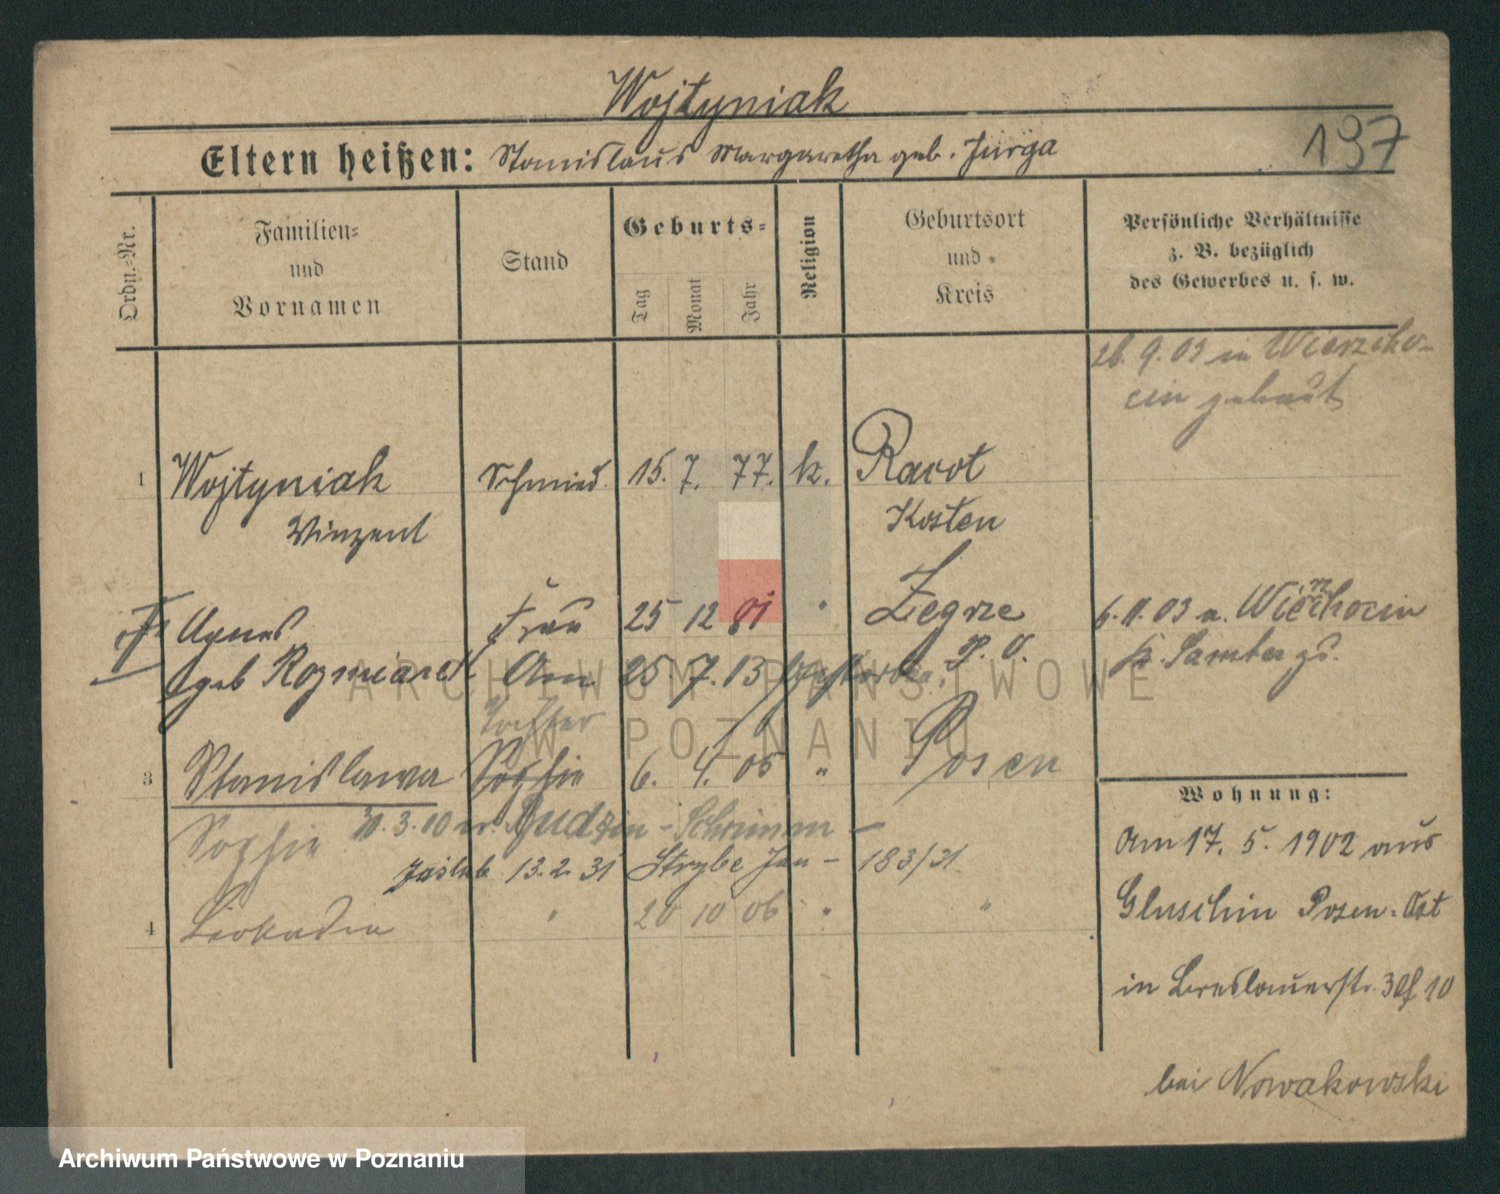 Wojtyniak
Eltern heißen: Stanislaus Margaretha geb. Jurga
197
Ordn.-Nr.
Familien-
und
Vornamen
Stand
Geburts-
Tag
Monat
Jahr
Religion
Geburtsort
und
Kreis
Persönliche Verhältnisse
z. B. bezüglich
des Gewerbes u. s. w.
26. 9. 03 in Wierzcho-
cin getraut
1 Wojtyniak Schmied 15. 7. 77. k. Racot
Winzent Kosten
Agnes Frau 25 12 81 " Zegrze
geb Rozmiarek Am 25. 7. 13 gestorben. P. O.
6. 11. 03 n. Wierzchocin
Kr. Samter gz.
Tochter
3 Stanislawa Sophie 6. 4. 05 " Posen
Sophie 30. 3. 10 n. Budzyn - Schrimm -
13. 2. 31 Strybe Jan - 183/31.
4 Leokadia " 20 10 06 " "
Wohnung:
Am 17. 5. 1902 aus
Gluschin Posen-Ost
in Breslauerstr. 10
bei Nowakowski
ARCHIWUM PAŃSTWOWE
W POZNANIU
Archiwum Państwowe w Poznaniu